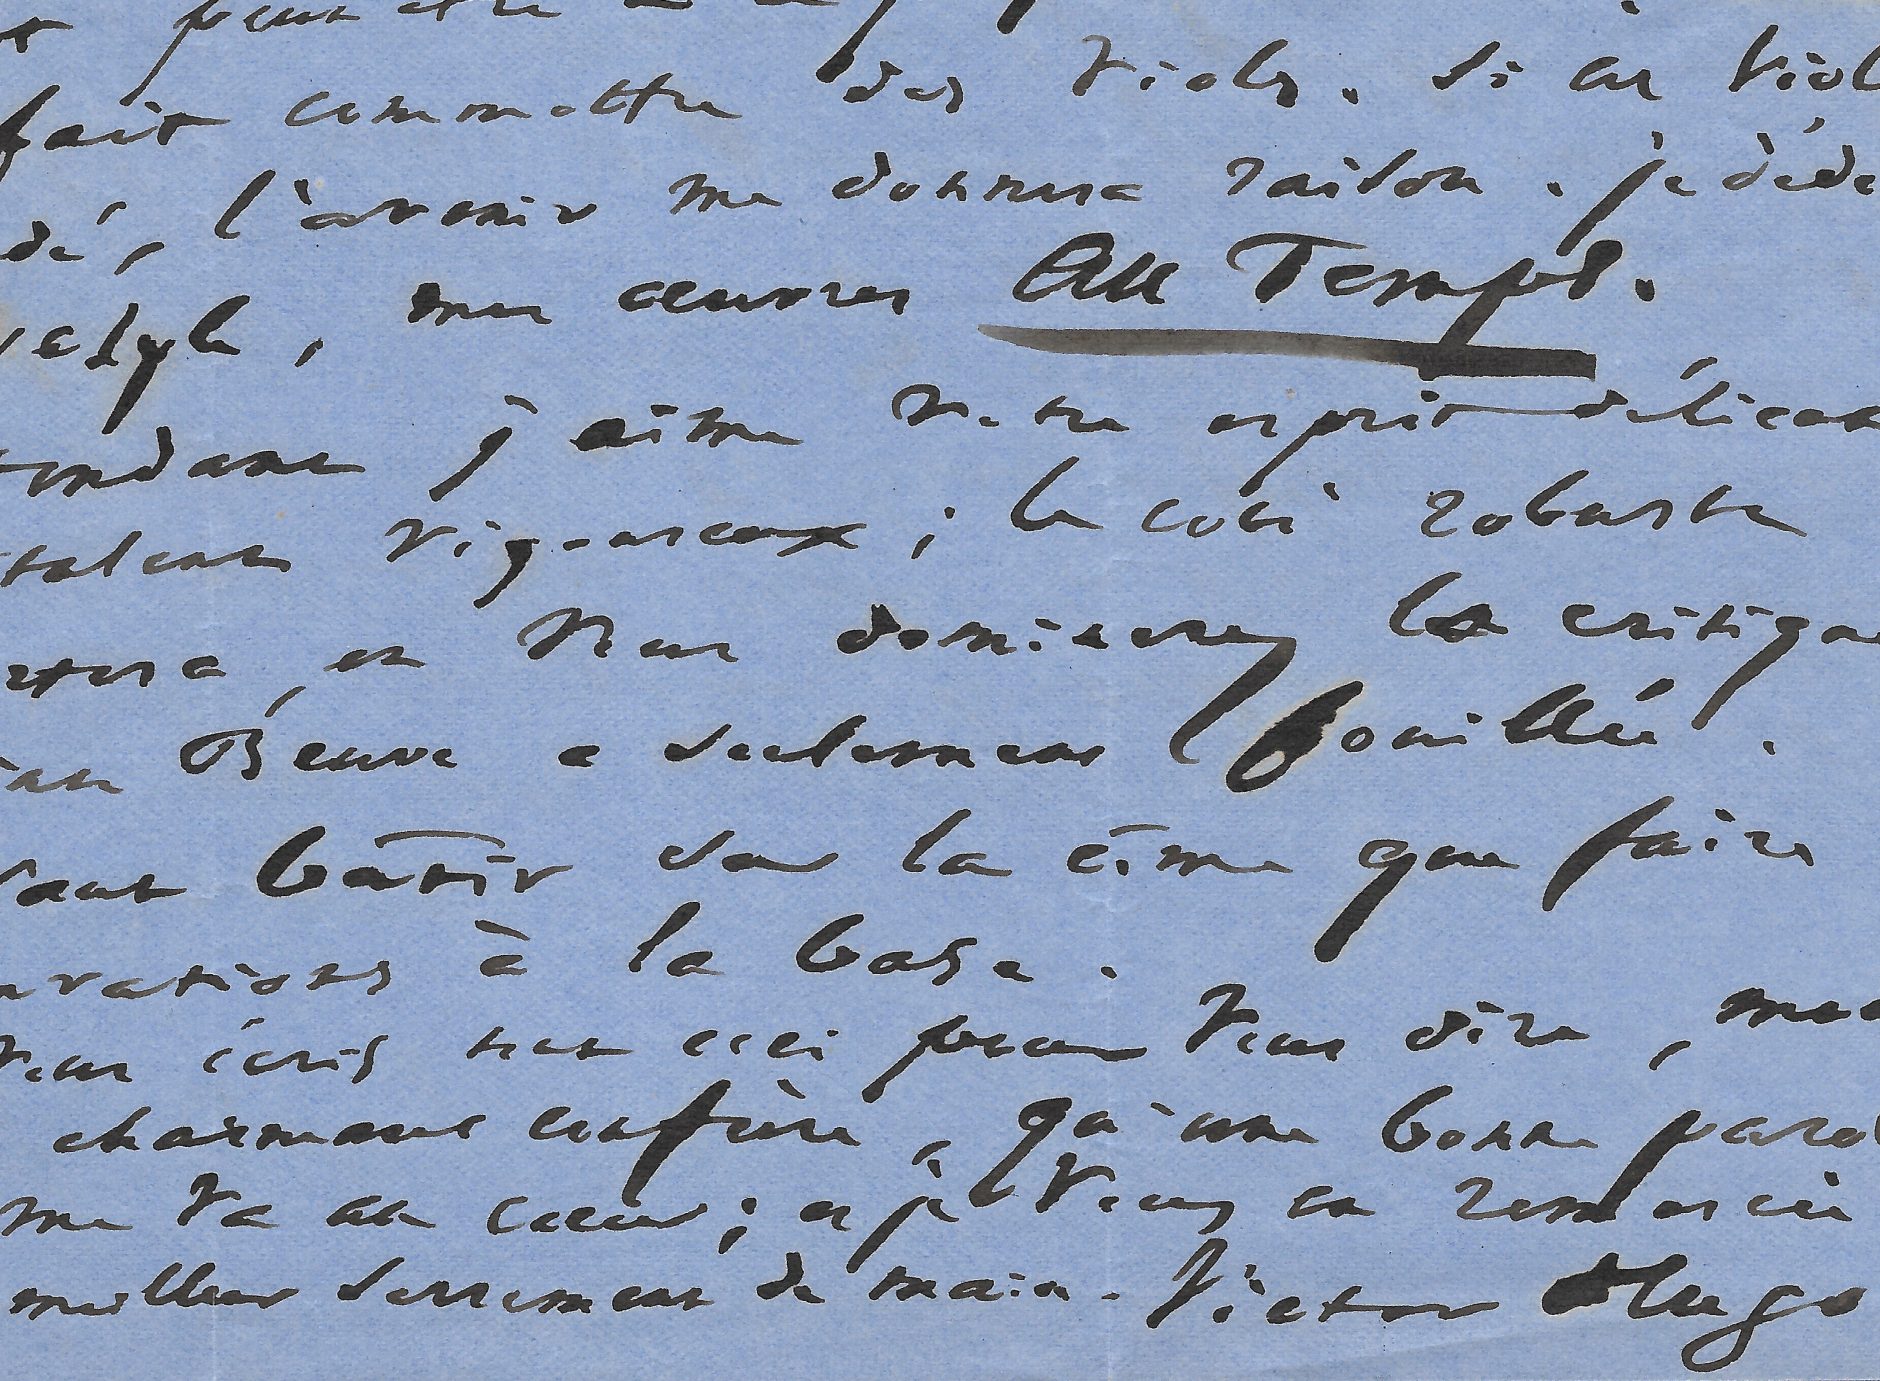 peut être
fait commettre des viols. Si ces viol
dé, l'avenir me donnera raison. je déde
style, mes œuvres Au Temps.
tendant j'aime votre esprit délicat
talent vigoureux ; le côté robuste
et vous dominerez la critique
Beuve a seulement fouillé.
vaut bâtir sur la cime que faire
à la base.
vous écris tout ceci pour vous dire, mon
charmant confrère, qu'une bonne parol
me va au cœur ; et je vous en remercie
meilleur serrement de main. Victor Hugo